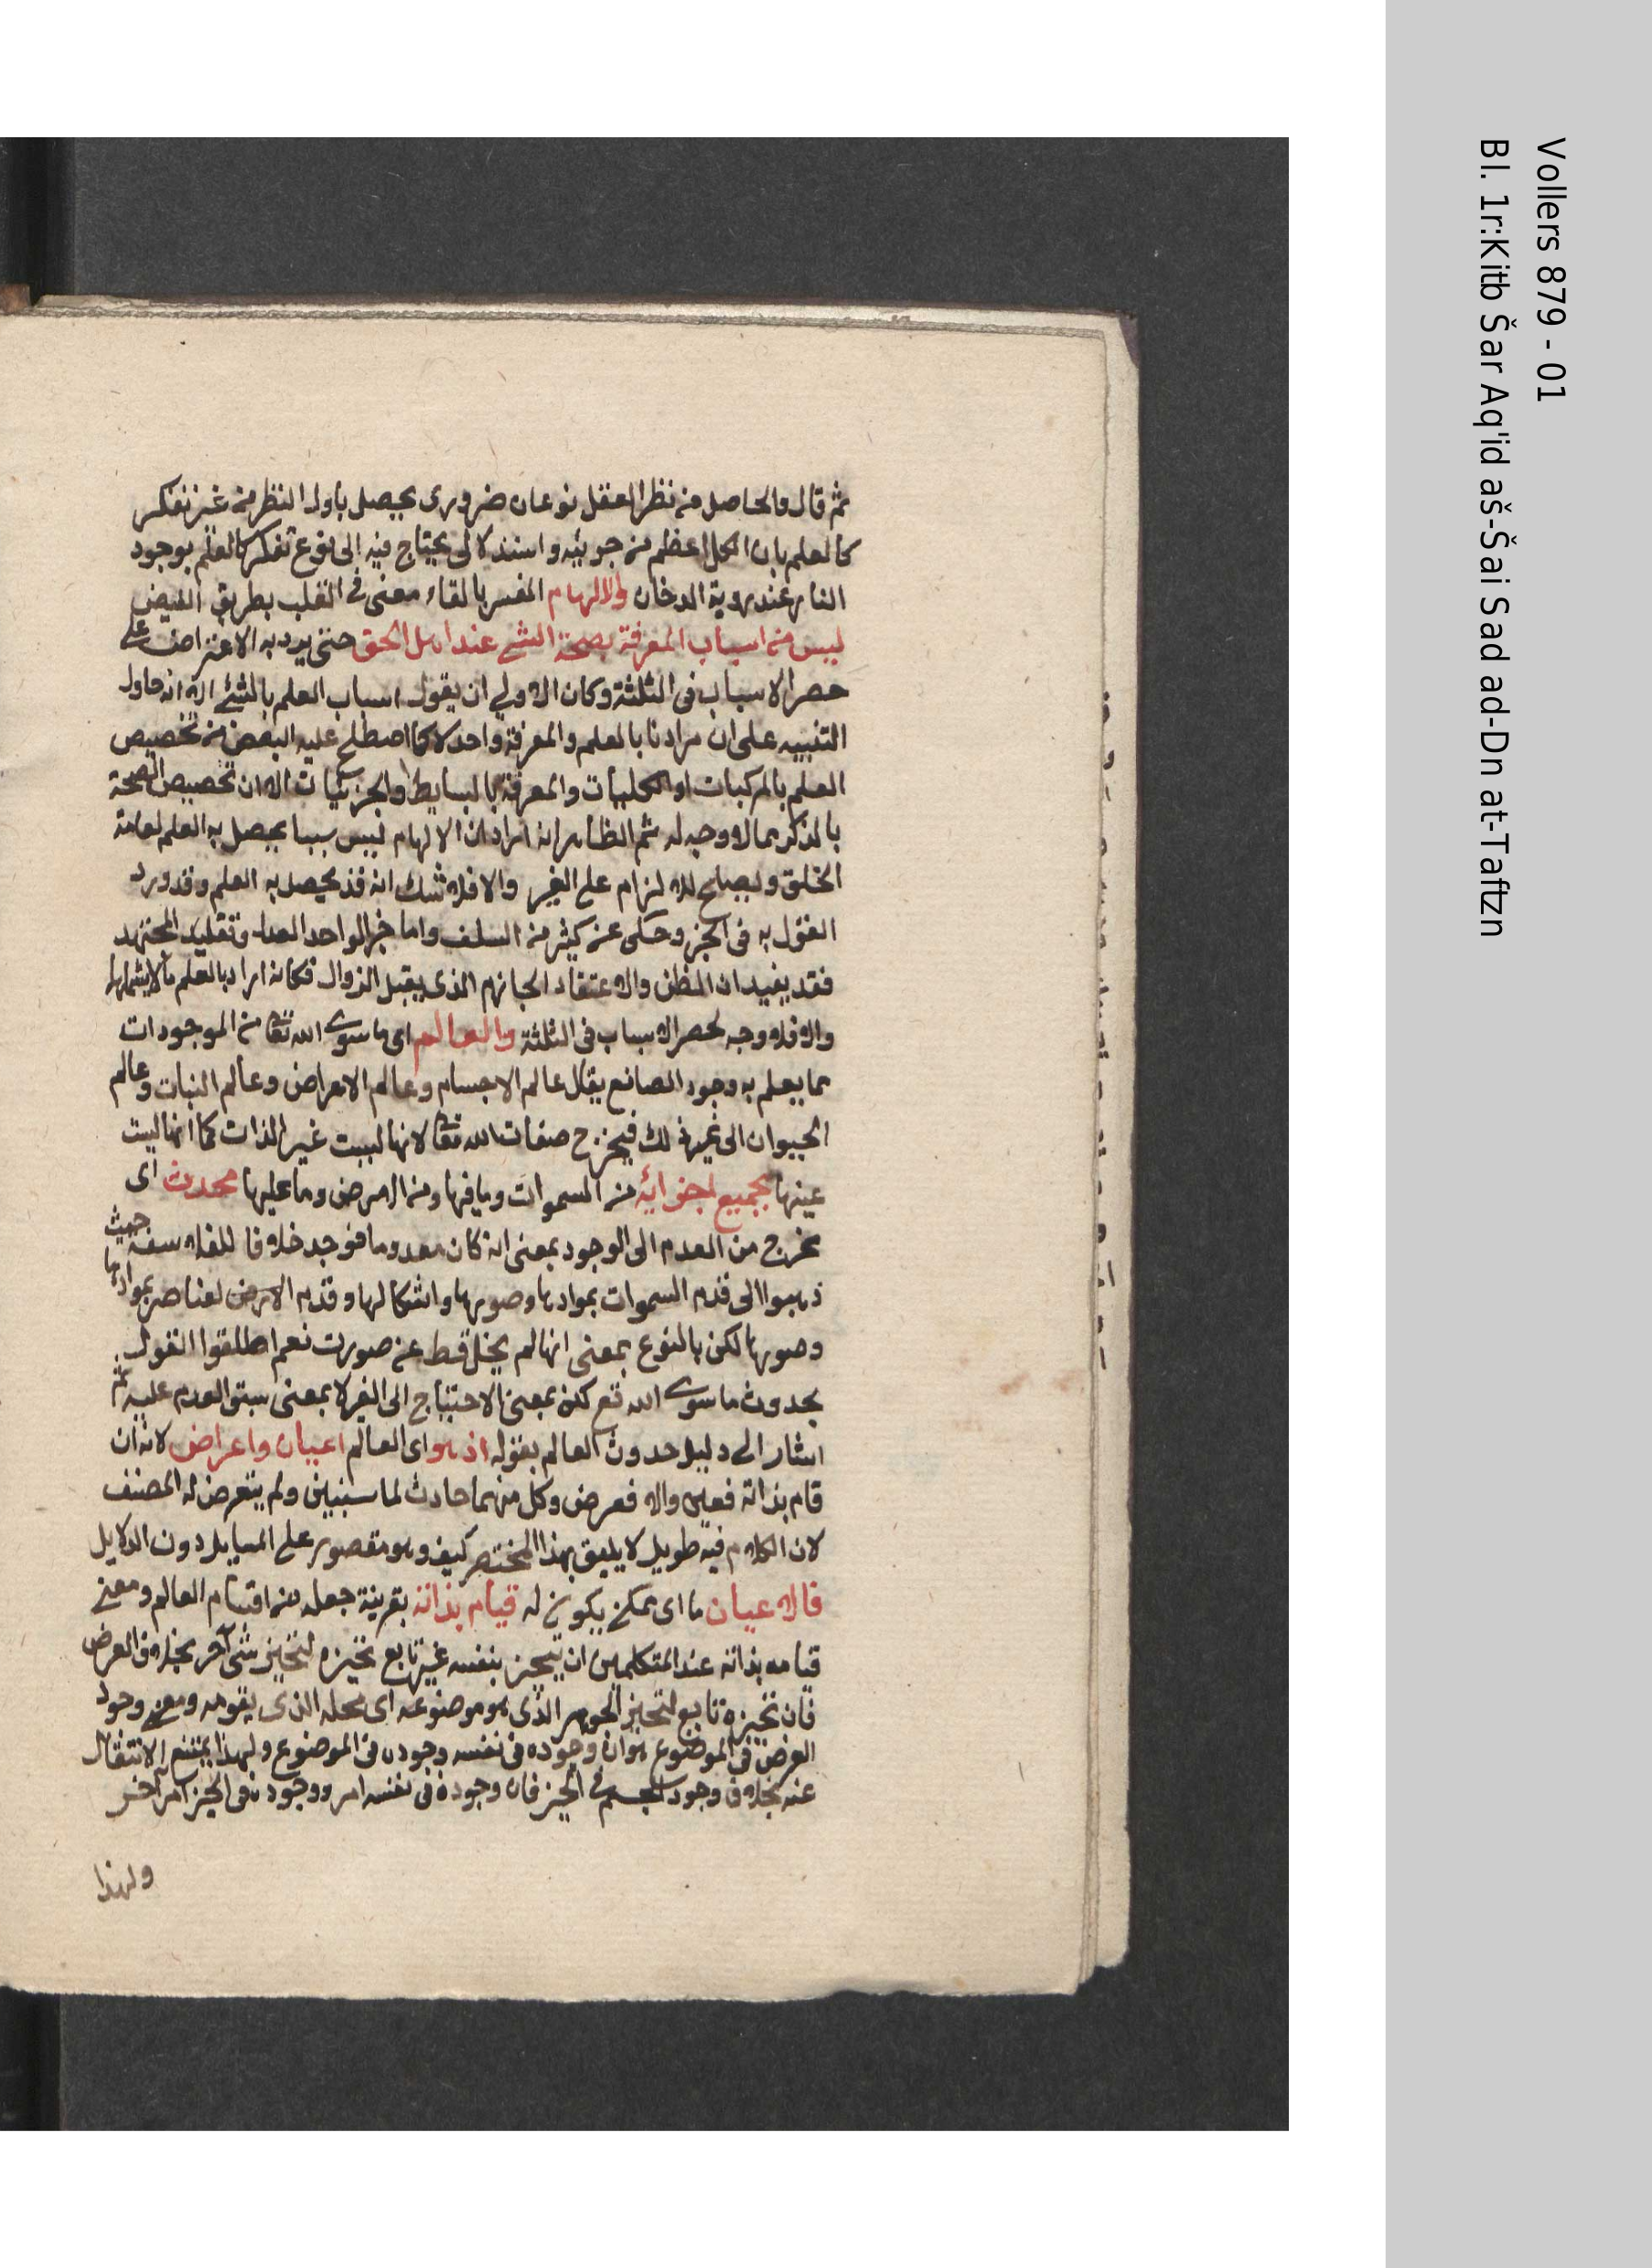 ثم قال والحاصل من نظر العقل نوعان ضرورى يحصل باول النظر من غير تفكر
كالعلم بان الكل اعظم من جزئيه واستدلالى يحتاج فيه الى نوع تفكر كالعلم بوجود
النار عند روية الدخان والالهام المفسر بالقاء معنى فى القلب بطريق الفيض
ليس من اسباب المعرفة بصحة الشئ عند اهل الحق حتى يرد به الاعتراض على
حصر الاسباب فى الثلثة وكان الاولى ان يقول اسباب العلم بالشئ الا انه حاول
التنبيه على ان مرادنا بالعلم والمعرفة واحد لا كما اصطلح عليه البعض من تخصيص
العلم بالمركبات او الكليات والمعرفة بالبسايط والجزئيات الا ان تخصيص الصحة
بالذكر مما لا وجه له ثم الظاهر انه اراد ان الالهام ليس سببا يحصل به العلم لعامة
الخلق ويصلح للالزام على الغير والا فلا شك انه قد يحصل به العلم وقد ورد
القول به فى الخبر وحكى عن كثير من السلف واما خبر الواحد العدل وتقليد المجتهد
فقد يفيدان الظن والاعتقاد الجازم الذى يقبل الزوال فكانه اراد بالعلم ما لا يشملهما
والا فلا وجه لحصر الاسباب فى الثلثة والعالم اى ما سوى الله تعا من الموجودات
مما يعلم به وجود الصانع يقال عالم الاجسام وعالم الاعراض وعالم النبات وعالم
الحيوان الى غير ذلك فيخرج صفات الله تعا لانها ليست غير الذات كما انها ليت
عينها بجميع اجزائه من السموات وما فيها ومن الارض وما عليها محدث اى
مخرج من العدم الى الوجود بمعنى انه كان معدوما فوجد خلافا للفلاسفة حيث
ذهبوا الى قدم السموات بموادها وصورها واشكالها وقدم الارض لعناصر بموادها
وصورها لكن بالنوع بمعنى انها لم يخل قط عن صورت نعم اطلقوا القول
بحدوث ما سوى الله تع لكن بمعنى الاحتياج الى الغير لا بمعنى سبق العدم عليه ثم
اشار الى دليل حدوث العالم بقوله اذ هو اى العالم اعيان واعراض لانه ان
قام بذاته فعين والا فعرض وكل منهما حادث لما سنبين ولم يتعرض له المصنف
لان الكلام فيه طويل لا يليق بهذا المختصر كيف وهو مقصور على المسايل دون الدلايل
فالاعيان ما اى ممكن يكون له قيام بذاته بقرينة جعله من اقسام العالم ومعنى
قيامه بذاته عند المتكلمين ان يتحيز بنفسه غير تابع تحيزه لتحيز شى آخر بخلاف العرض
فان تحيزه تابع لتحيز الجوهر الذى هو موضوعه اى محله الذى يقومه ومعنى وجود
العرض فى الموضوع هو ان وجوده فى نفسه وجوده فى الموضوع ولهذا يمتنع الانتقال
عنه بخلاف وجود الجسم فى الحيز فان وجوده فى نفسه امر ووجوده فى الحيز امر آخر
ولهذا
Vollers 879 - 01
Bl. 1r:Kitb Šar Aq'id aš-Šai Sad ad-Dn at-Taftzn